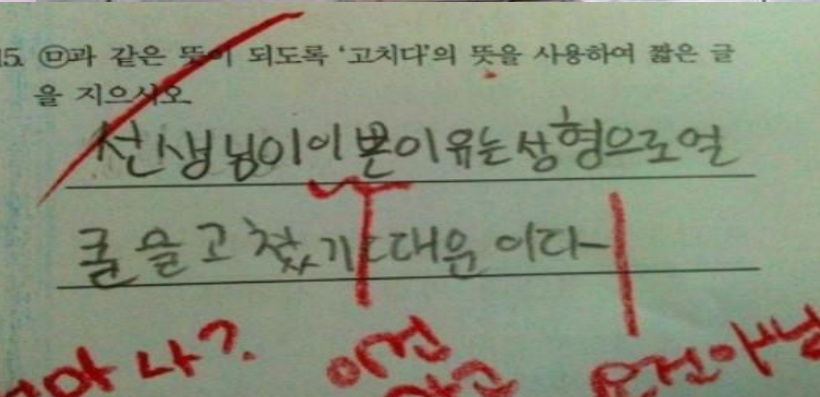 15. ㉤과 같은 뜻이 되도록 '고치다'의 뜻을 사용하여 짧은 글
을 지으시오
선생님이이쁜이유는성형으로얼
굴을고쳤기때문이다
나?
이건